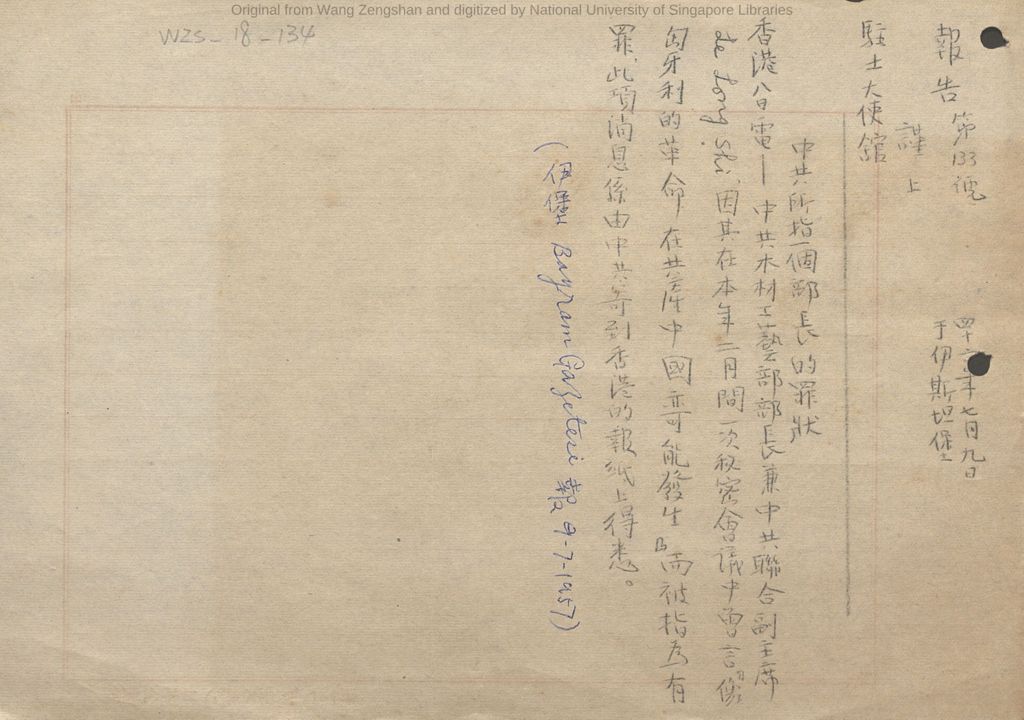 Original from Wang Zengshan and digitized by National University of Singapore Libraries
WZS_18_134
報告 第133號
四十六年七月九日
于伊斯坦堡
謹上
駐土大使館
中共所指一個部長的罪狀
香港八日電—中共木材工藝部部長兼中共聯合副主席
Lo Long Shi,因其在本年二月間一次秘密會議中曾言「像
匈牙利的革命在共產中國亦可能發生」而被指為有
罪,此項消息係由中共寄到香港的報紙上得悉。
(伊堡 Bayram Gazetesi 報 9-7-1957)